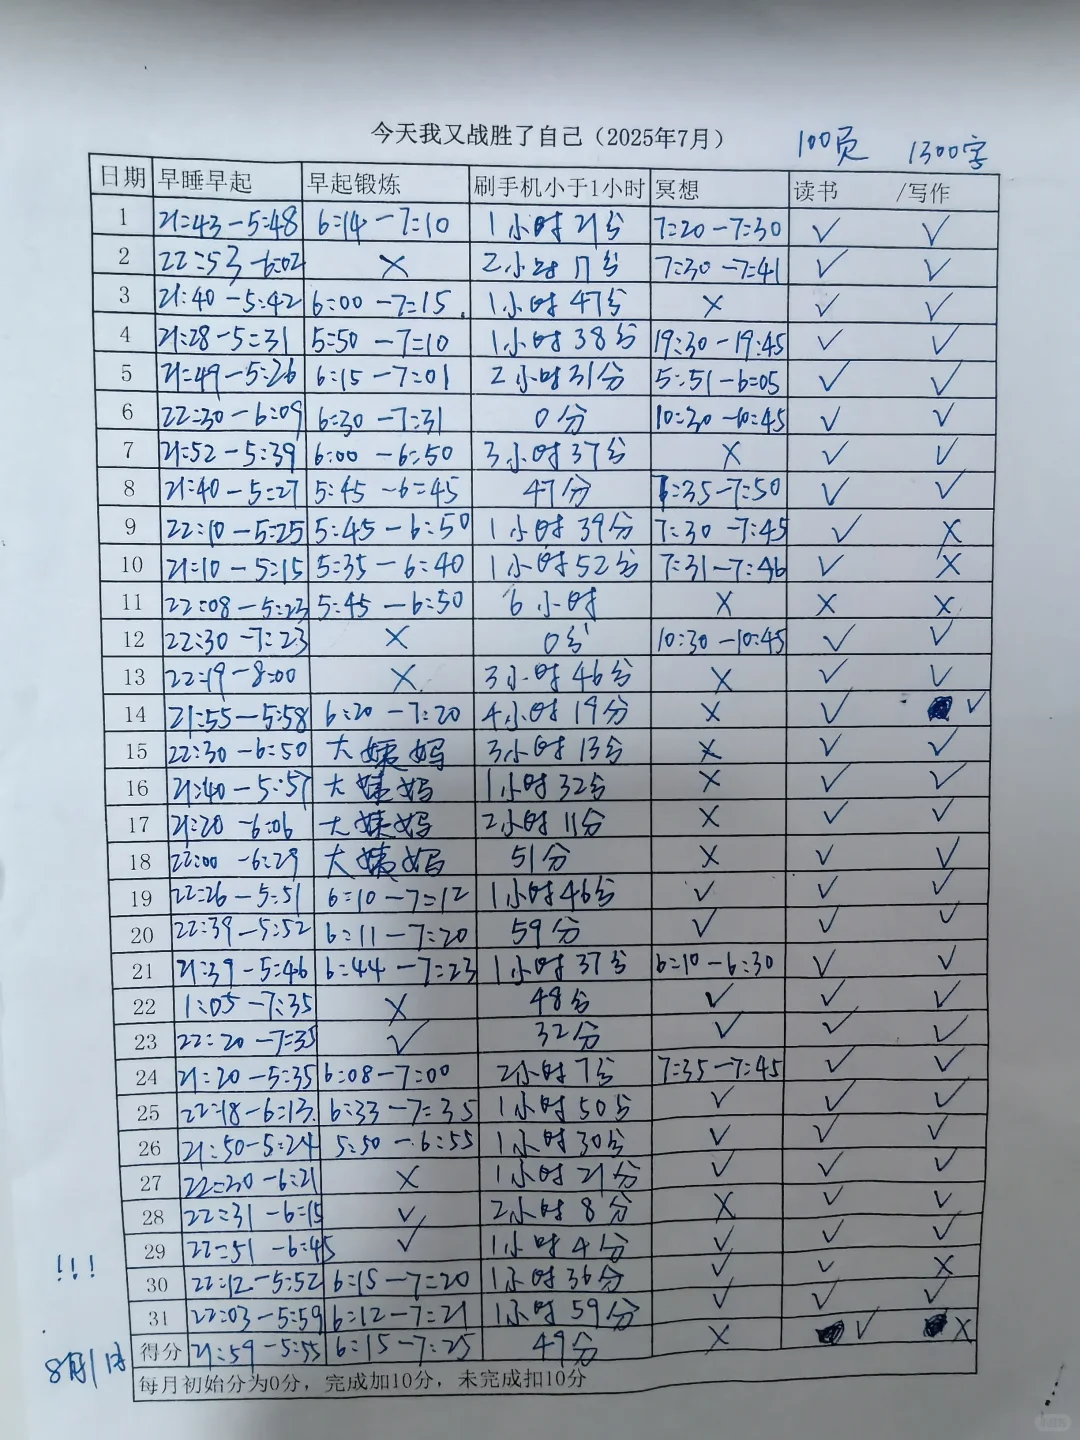 今天我又战胜了自己（2025年7月） 100页 1300字
日期 早睡早起 早起锻炼 刷手机小于1小时 冥想 读书 /写作
1 21:43-5:48 6:14-7:10 1小时21分 7:20-7:30 ✓ ✓
2 22:53-6:02 × 2小时17分 7:30-7:41 ✓ ✓
3 21:40-5:42 6:00-7:15 1小时47分 × ✓ ✓
4 21:28-5:31 5:50-7:10 1小时38分 19:30-19:45 ✓ ✓
5 21:49-5:26 6:15-7:01 2小时31分 5:51-6:05 ✓ ✓
6 22:30-6:09 6:30-7:31 0分 10:30-10:45 ✓ ✓
7 21:52-5:39 6:00-6:50 3小时37分 × ✓ ✓
8 21:40-5:27 5:45-6:45 47分 :35-7:50 ✓ ✓
9 22:10-5:25 5:45-6:50 1小时39分 7:30-7:45 ✓ ×
10 21:10-5:15 5:35-6:40 1小时52分 7:31-7:46 ✓ ×
11 22:08-5:23 5:45-6:50 6小时 × × ×
12 22:30-7:23 × 0分 10:30-10:45 ✓ ✓
13 22:19-8:00 × 3小时46分 × ✓ ✓
14 21:55-5:58 6:20-7:20 4小时19分 × ✓ ✓
15 22:30-6:50 大姨妈 3小时13分 × ✓ ✓
16 21:40-5:57 大姨妈 1小时32分 × ✓ ✓
17 21:20-6:06 大姨妈 2小时11分 × ✓ ✓
18 22:00-6:29 大姨妈 51分 × ✓ ✓
19 22:26-5:51 6:10-7:12 1小时46分 ✓ ✓ ✓
20 22:39-5:52 6:11-7:20 59分 ✓ ✓ ✓
21 21:39-5:46 6:44-7:23 1小时37分 6:10-6:30 ✓ ✓
22 1:05-7:35 × 48分 ✓ ✓ ✓
23 22:20-7:35 ✓ 32分 ✓ ✓ ✓
24 21:20-5:35 6:08-7:00 2小时7分 7:35-7:45 ✓ ✓
25 22:18-6:13 6:33-7:35 1小时50分 ✓ ✓ ✓
26 21:50-5:24 5:50-6:55 1小时30分 ✓ ✓ ✓
27 22:30-6:21 × 1小时21分 ✓ ✓ ✓
28 22:31-6:15 ✓ 2小时8分 × ✓ ✓
29 22:51-6:45 ✓ 1小时4分 ✓ ✓ ✓
!!! 30 22:12-5:52 6:15-7:20 1小时36分 ✓ ✓ ×
31 22:03-5:59 6:12-7:21 1小时59分 ✓ ✓ ✓
8月1日 得分 21:59-5:55 6:15-7:25 49分 × ✓ ×
每月初始分为0分，完成加10分，未完成扣10分